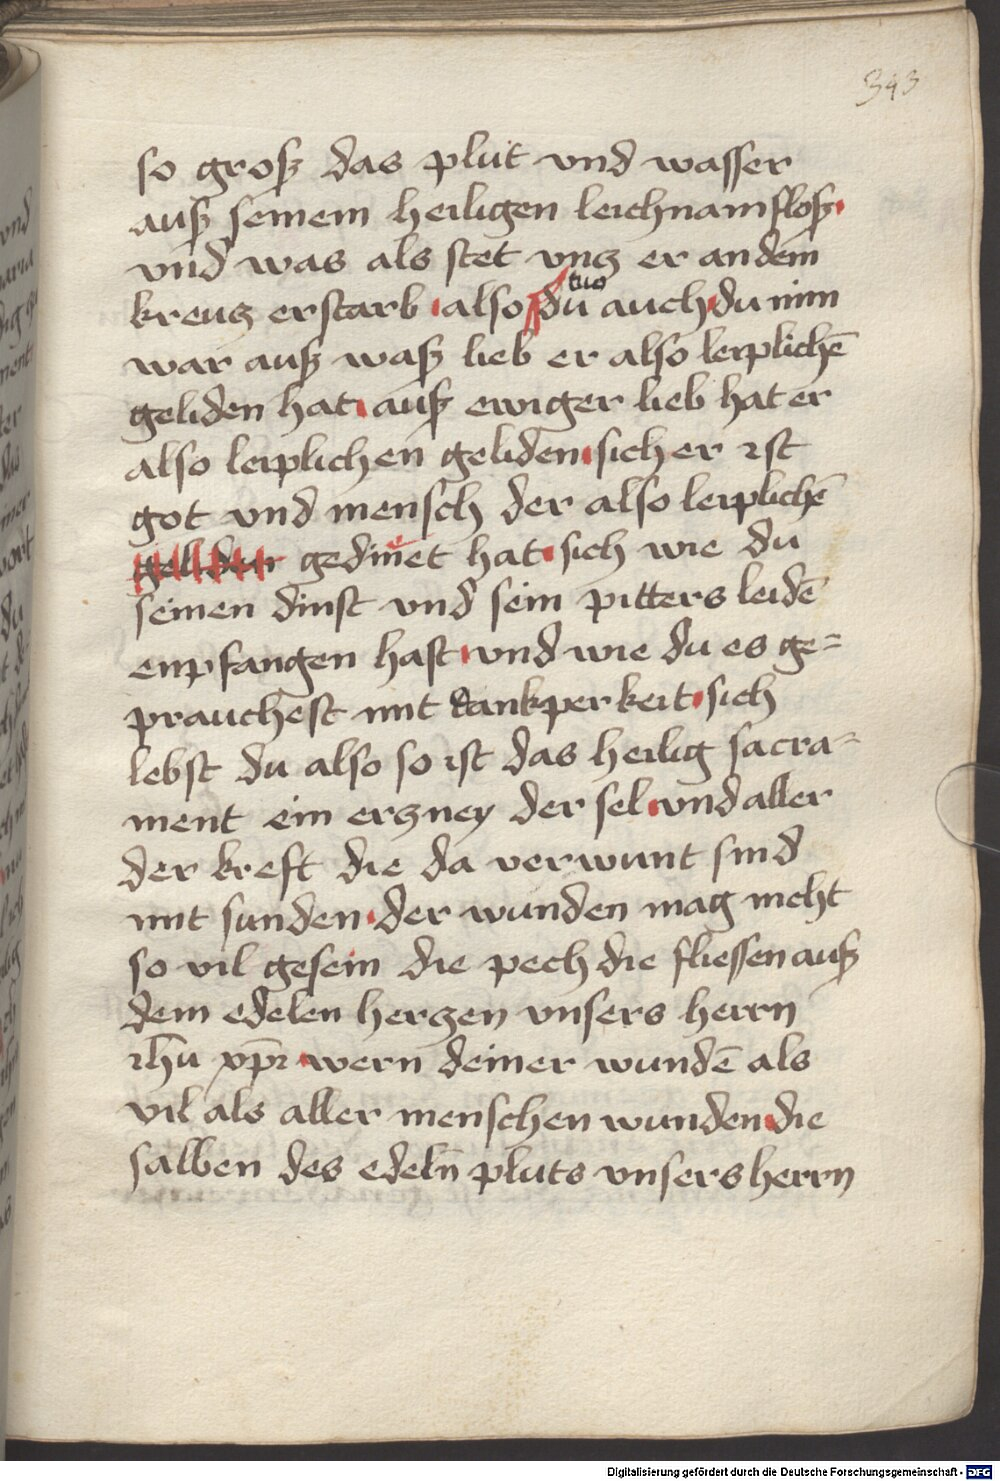 343
so groß das plut vnd wasser
auß seinem heiligen leichnam floß
vnd was als stet vnz er an dem
kreuz erstarb also tuo du auch du nim
war auß waß lieb er also leiplichē
geliden hat auß ewiger lieb hat er
also leiplichen geliden sich er ist
got vnd mensch der also leiplichē
geliden gedinet hat sich wie du
seinen dinst vnd sein pitters leidē
enpfangen hast vnd wie du es ge=
prauchest mit dankperkeit sich
lebst du also so ist das heilig sacra=
ment ein erzney der sel vnd aller
der kreft die da verwunt sind
mit sunden der wunden mag nicht
so vil gesein die pech die fliessen auß
dem edelen herzen vnsers herrn
ihū xp̄i wern deiner wundē als
vil als aller menschen wunden die
salben des edeln̄ pluts vnsers herrn
Digitalisierung gefördert durch die Deutsche Forschungsgemeinschaft - DFG